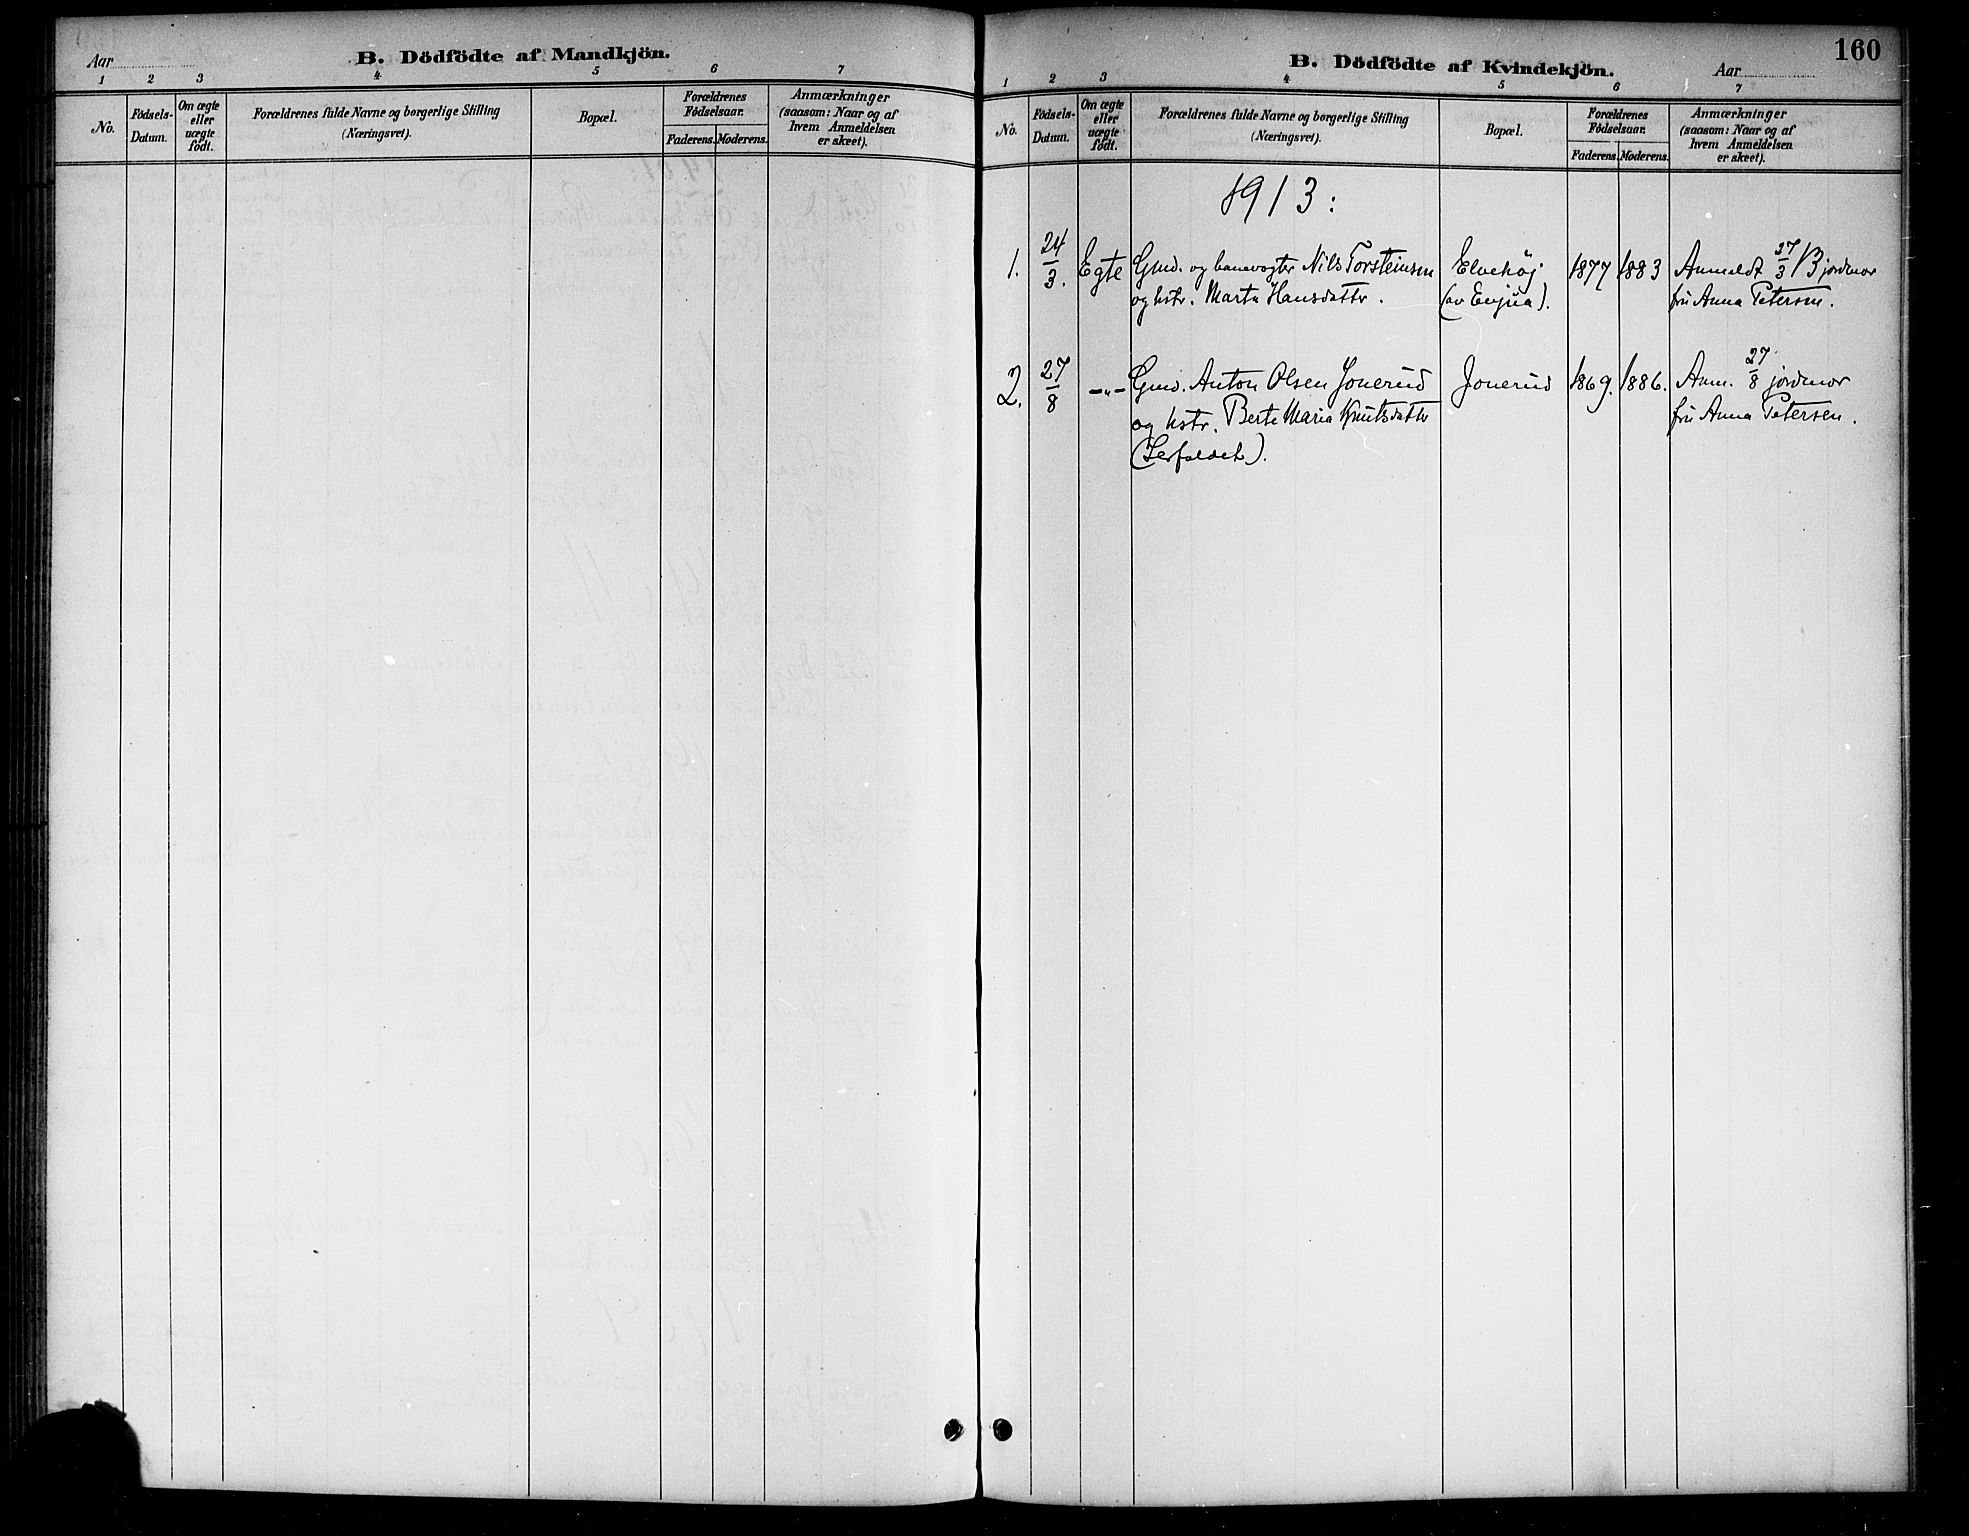 Aar
B. Dödfödte af Mandkjön.
1 2 3 4 5 6 7
No.
Födsels-Datum.
Om ægte eller uægte födt.
Forældrenes fulde Navne og borgerlige Stilling
(Næringsvei).
Bopæl.
Forældrenes Födselsaar.
Faderens. Moderens.
Anmærkninger
(saasom: Naar og af
hvem Anmeldelsen
er skeet).
B. Dödfödte af Kvindekjön.
Aar
160
1 2 3 4 5 6 7
No.
Födsels-Datum.
Om ægte eller uægte födt.
Forældrenes fulde Navne og borgerlige Stilling
(Næringsvei).
Bopæl.
Forældrenes Födselsaar.
Faderens. Moderens.
Anmærkninger
(saasom: Naar og af
hvem Anmeldelsen
er skeet).
1913:
1. 24/3. Egte Gmd. og banevogter Nils Torsteinsen Elvehöj 1877 1883 Anmeldt 27/3 jordmor
og hstr. Marta Hansdattr. (av Enjua). fru Anna Petersen.
2. 27/8 -"- Gmd. Anton Olsen Jonerud Jonerud 1869. 1886. Anm. 27/8 jordmor
og hstr. Berte Maria Knutsdattr fru Anna Petersen.